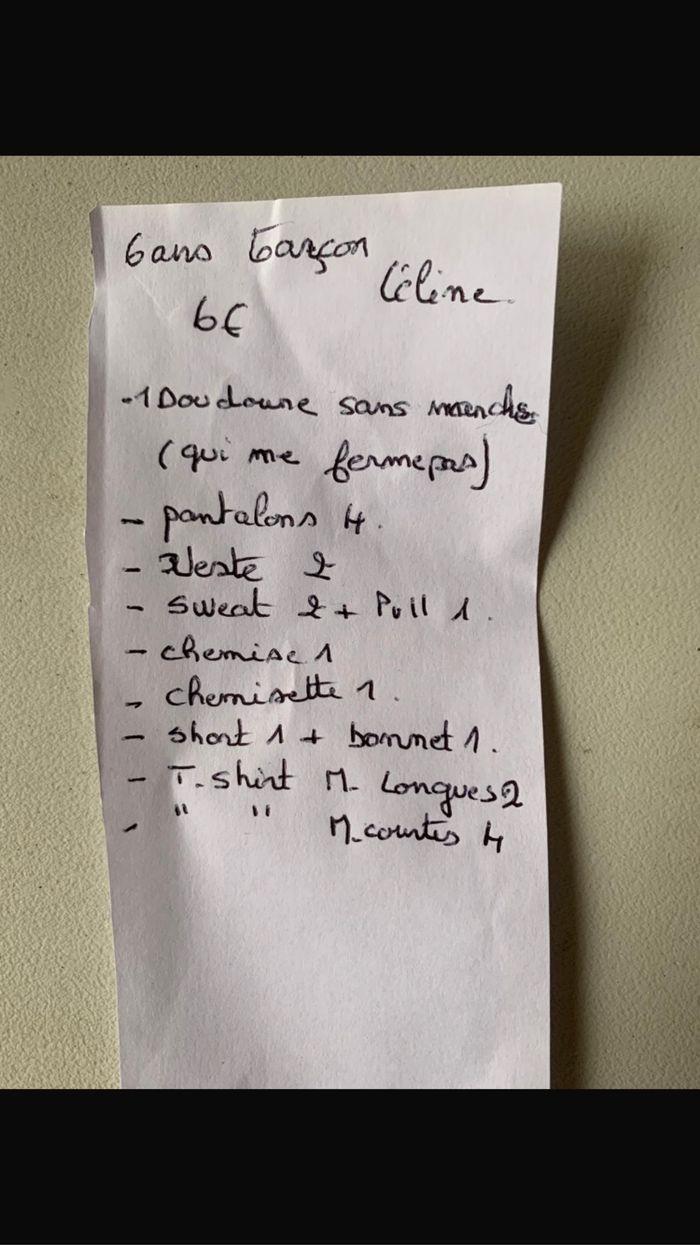 6 ans Garçon
Céline.
6€
- 1 Doudoune sans manches
(qui ne ferme pas)
- pantalons 4.
- Veste 2
- Sweat 2 + Pull 1.
- chemise 1
- chemisette 1.
- short 1 + bonnet 1.
- T. shirt M. Longues 2
- " " M. courtes 4